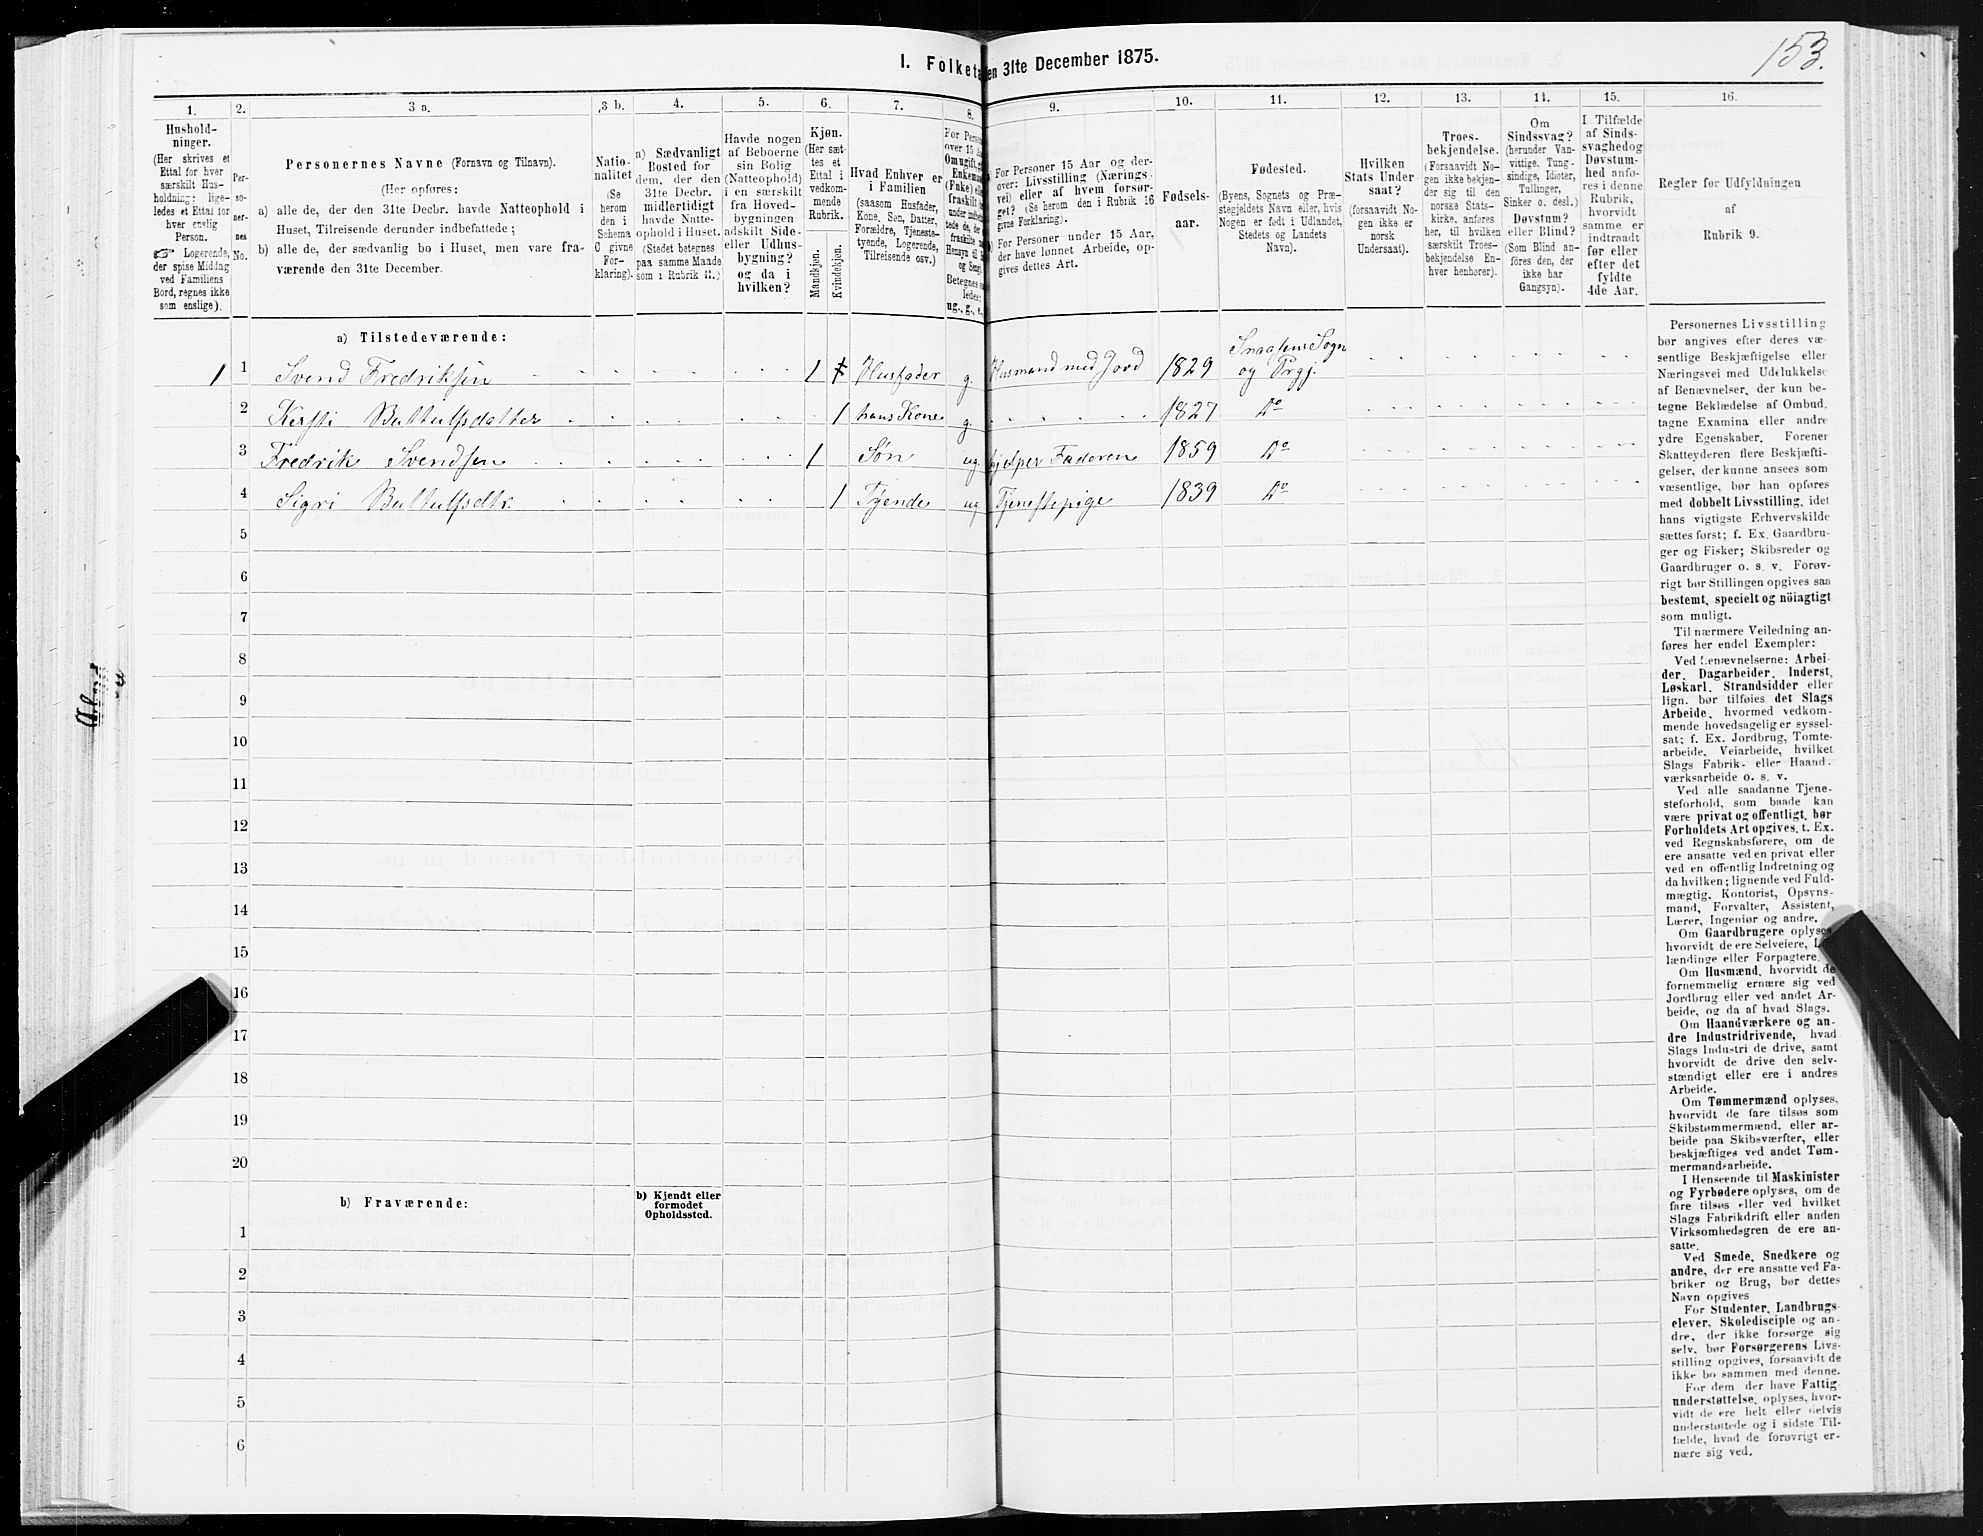 153.
I. Folketa en 31te December 1875.
1. 2. 3 a. 3 b. 4. 5. 6. 7. 8. 9. 10. 11. 12. 13. 14. 15. 16.
Hushold-
ninger.
(Her skrives et
Ettal for hver
særskilt Hus-
holdning; lige-
ledes et Ettal for
hver enslig
Person.
☞ Logerende,
der spise Middag
ved Familiens
Bord, regnes ikke
som enslige).
Per-
so-
ner-
nes
No.
Personernes Navne (Fornavn og Tilnavn).
(Her opføres:
a) alle de, der den 31te Decbr. havde Natteophold i
Huset, Tilreisende derunder indbefattede;
b) alle de, der sædvanlig bo i Huset, men vare fra-
værende den 31te December.
Natio-
nalitet
(Se
herom
den i
Schema
C givne
For-
klaring).
a) Sædvanligt
Bosted for
dem, der den
31te Decbr.
midlertidigt
havde Natte-
ophold i Huset.
(Stedet betegnes
paa samme Maade
som i Rubrik 11.)
Havde nogen
af Beboerne
sin Bolig
(Natteophold)
i en særskilt
fra Hoved-
bygningen
adskilt Side-
eller Udhus-
bygning?
og da i
hvilken?
Kjøn.
(Her sæt-
tes et
Ettal i
vedkom-
mende
Rubrik.
Mandkjøn.
Kvindekjøn.
Hvad Enhver er
i Familien
(saasom Husfader,
Kone, Søn, Datter,
Forældre, Tjeneste-
tyende, Logerende,
Tilreisende osv.)
For Perso
over 15 A
Om ugift, g
Enkeman
(Enke) elle
fraskilt
Hensyn til
og Seng.
Betegnes sa
ledes:
ug., g., e.
For Personer 15 Aar og der-
over: Livsstilling (Nærings-
vei) eller af hvem forsør-
get? (Se herom den i Rubrik 16
givne Forklaring).
For Personer under 15 Aar,
der have lønnet Arbeide, op-
gives dettes Art.
Fødsels-
aar.
Fødested.
(Byens, Sognets og Præ-
stegjeldets Navn eller, hvis
Nogen er født i Udlandet,
Stedets og Landets
Navn).
Hvilken
Stats Under-
saat?
(forsaavidt No-
gen ikke er
norsk
Undersaat).
Troes-
bekjendelse.
(Forsaavidt No-
gen ikke bekjen-
der sig til den
norske Stats-
kirke, anføres
her, til hvilken
særskilt Troes-
bekjendelse En-
hver henhorer).
Om
Sindssvag?
(herunder Van-
vittige, Tung-
sindige, Idioter,
Tullinger,
Sinker o. desl.)
Døvstum?
eller Blind?
(Som Blind an-
føres den, der
ikke har
Gangsyn).
I Tilfælde
af Sinds-
svaghedog
Døvstum-
hed anfø-
res i denne
Rubrik,
hvorvidt
samme er
indtraadt
før eller
efter det
fyldte
4de Aar.
Regler for Udfyldningen
af
Rubrik 9.
a) Tilstedeværende:
1 1 Svend Fredriksen 1 Husfader g. Husmand med Jord 1829 Snaasens Sogn og Prgj.
2 Kirsti Buttulfsdatter 1 hans Kone g. 1827 Do
3 Fredrik Svendsen 1 Søn ug. hjelper Faderen 1859 Do
4 Sigri Buttulfsdtr. 1 Tyende ug Tjenestepige 1839 Do
5
6
7
8
9
10
11
12
13
14
15
16
17
18
19
20
b) Fraværende:
b) Kjendt eller
formodet
Opholdssted.
1
2
3
4
5
6
Personernes Livsstilling
bør angives efter deres væ-
sentlige Beskjæftigelse eller
Næringsvei med Udelukkelse
af Benævnelser, der kun be-
tegne Beklædelse af Ombud,
tagne Examina eller andre
ydre Egenskaber. Forener
Skatteyderen flere Beskjæfti-
gelser, der kunne ansees som
væsentlige, bør han opføres
med dobbelt Livsstilling, idet
hans vigtigste Erhvervskilde
sættes først; f. Ex. Gaardbru-
ger og Fisker; Skibsreder og
Gaardbruger o. s. v. Forøv-
rigt bør Stillingen opgives saa
bestemt, specielt og nöiagtigt
som muligt.
Til nærmere Veiledning an-
føres her endel Exempler:
Ved Benævnelserne: Arbei-
der, Dagarbeider, Inderst,
Løskarl, Strandsidder eller
lign. bør tilføies det Slags
Arbeide, hvormed vedkom-
mende hovedsagelig er syssel-
sat; f. Ex. Jordbrug, Tomte-
arbeide, Veiarbeide, hvilket
Slags Fabrik- eller Haand-
værksarbeide o. s. v.
Ved alle saadanne Tjene-
steforhold, som baade kan
være privat og offentligt, bør
Forholdets Art opgives, t. Ex.
ved Regnskabsførere, om de
ere ansatte ved en privat eller
ved en offentlig Indretning og
da hvilken; lignende ved Fuld-
mægtig, Kontorist, Opsyns-
mand, Forvalter, Assistent,
Lærer, Ingeniør og andre.
Om Gaardbrugere oplyses,
hvorvidt de ere Selveiere,
lændinge eller Forpagtere.
Om Husmænd, hvorvidt de
fornemmelig ernære sig ved
Jordbrug eller ved andet Ar-
beide, og da af hvad Slags.
Om Haandværkere og an-
dre Industridrivende, hvad
Slags Industri de drive, samt
hvorvidt de drive den selv-
stændigt eller ere i andres
Arbeide.
Om Tømmermænd oplyses,
hvorvidt de fare tilsøs som
Skibstømmermænd, eller ar-
beide paa Skibsværfter, eller
beskjæftiges ved andet Tøm-
mermandsarbeide.
I Henseende til Maskinister
og Fyrbødere oplyses, om de
fare tilsøs eller ved hvilket
Slags Fabrikdrift eller anden
Virksomhedsgren de ere an-
satte.
Ved Smede, Snedkere og
andre, der ere ansatte ved Fa-
briker og Brug, bør dettes
Navn opgives
For Studenter, Landbrugs-
elever, Skoledisciple og an-
dre, der ikke forsørge sig
selv, bør Forsørgerens Livs-
stilling opgives, forsaavidt de
ikke bo sammen med denne.
For dem der have Fattig-
understøttelse, oplyses, hvor-
vidt de ere helt eller delvis
understøttede og i sidste Til-
fælde, hvad de forøvrigt er-
nære sig ved.